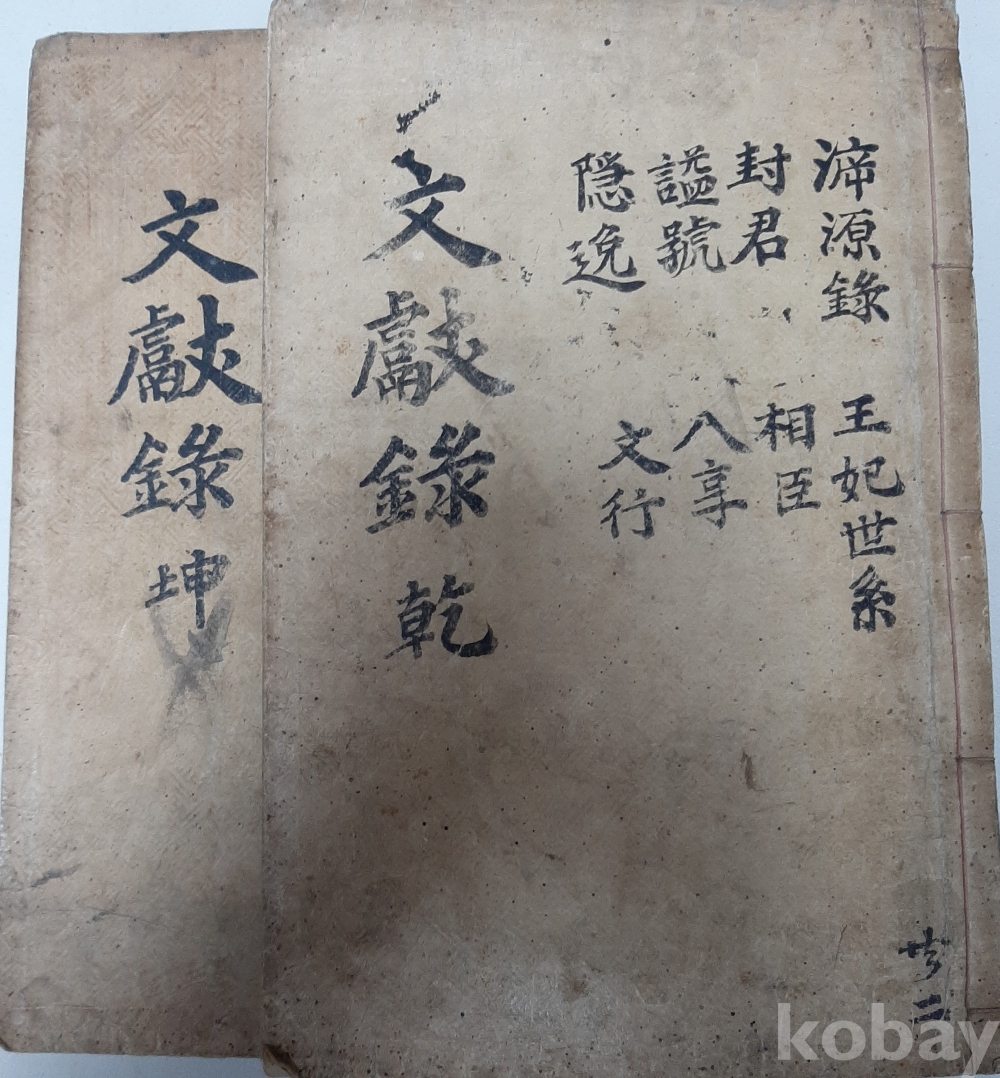 渧源錄 王妃世系
封君 相臣
諡號 八享
隐逸 文行
文獻錄 乾
共二
文獻錄 坤
kobay